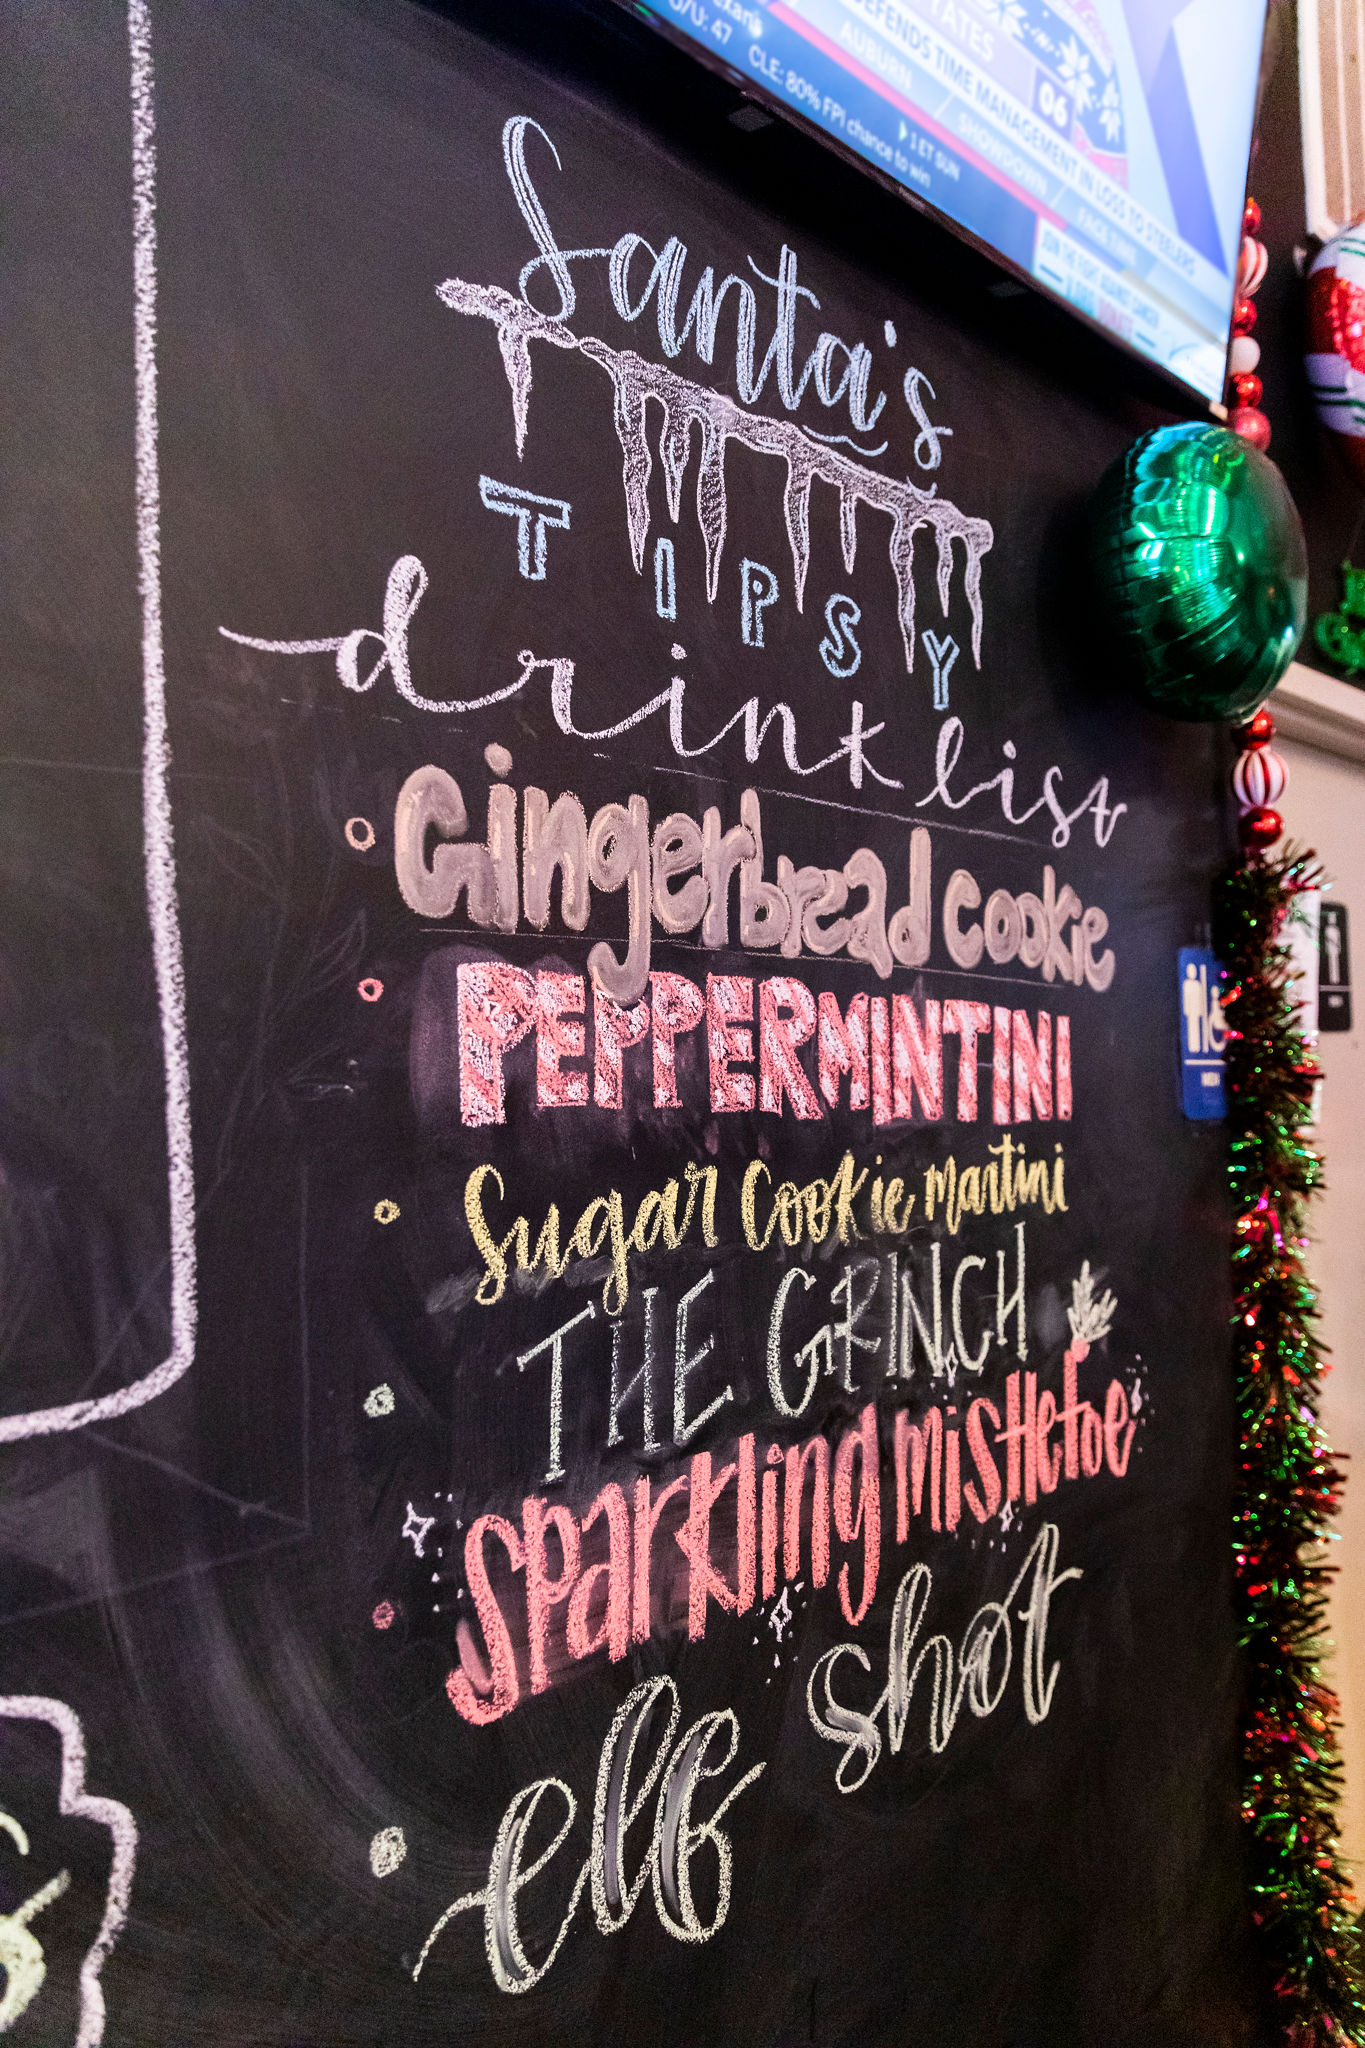 O/U: 47
CLE: 80% FPI chance to win
1 ET SUN
AUBURN
SHOWDOWN
DEFENDS TIME MANAGEMENT IN LOSS TO STEELERS
06
Santa's
TIPSY
drink list
Gingerbread cookie
PEPPERMINTINI
Sugar cookie martini
THE GRINCH
Sparkling mistletoe
elf shot
MEN